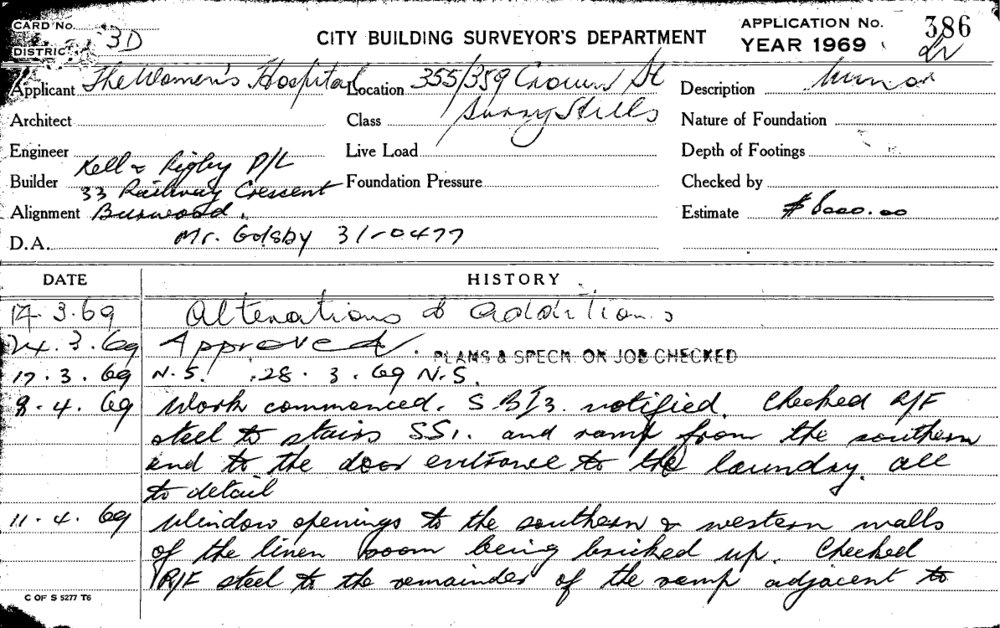 CARD No.
DISTRICT 3D
CITY BUILDING SURVEYOR'S DEPARTMENT
APPLICATION No. 386
YEAR 1969
Applicant The Women's Hospital
Location 355/359 Crown St
Surry Hills
Description
Architect
Class
Nature of Foundation
Engineer
Live Load
Depth of Footings
Builder Kell & Rigby P/L
33 Railway Crescent
Foundation Pressure
Checked by
Alignment Burwood.
Estimate $6000.00
D.A. Mr. Golsby 31-0477
DATE HISTORY
14.3.69 Alterations & additions
24.3.69 Approved. PLANS & SPECN. ON JOB CHECKED
17.3.69 N.S. 28.3.69 N.S.
8.4.69 Work commenced. S.B.I3. notified. Checked R/F
steel to stairs SS1. and ramp from the southern
end to the door entrance to the laundry. all
to detail
11.4.69 Window openings to the southern & western walls
of the linen room being bricked up. Checked
R/F steel to the remainder of the ramp adjacent to
C OF S 5277 T6